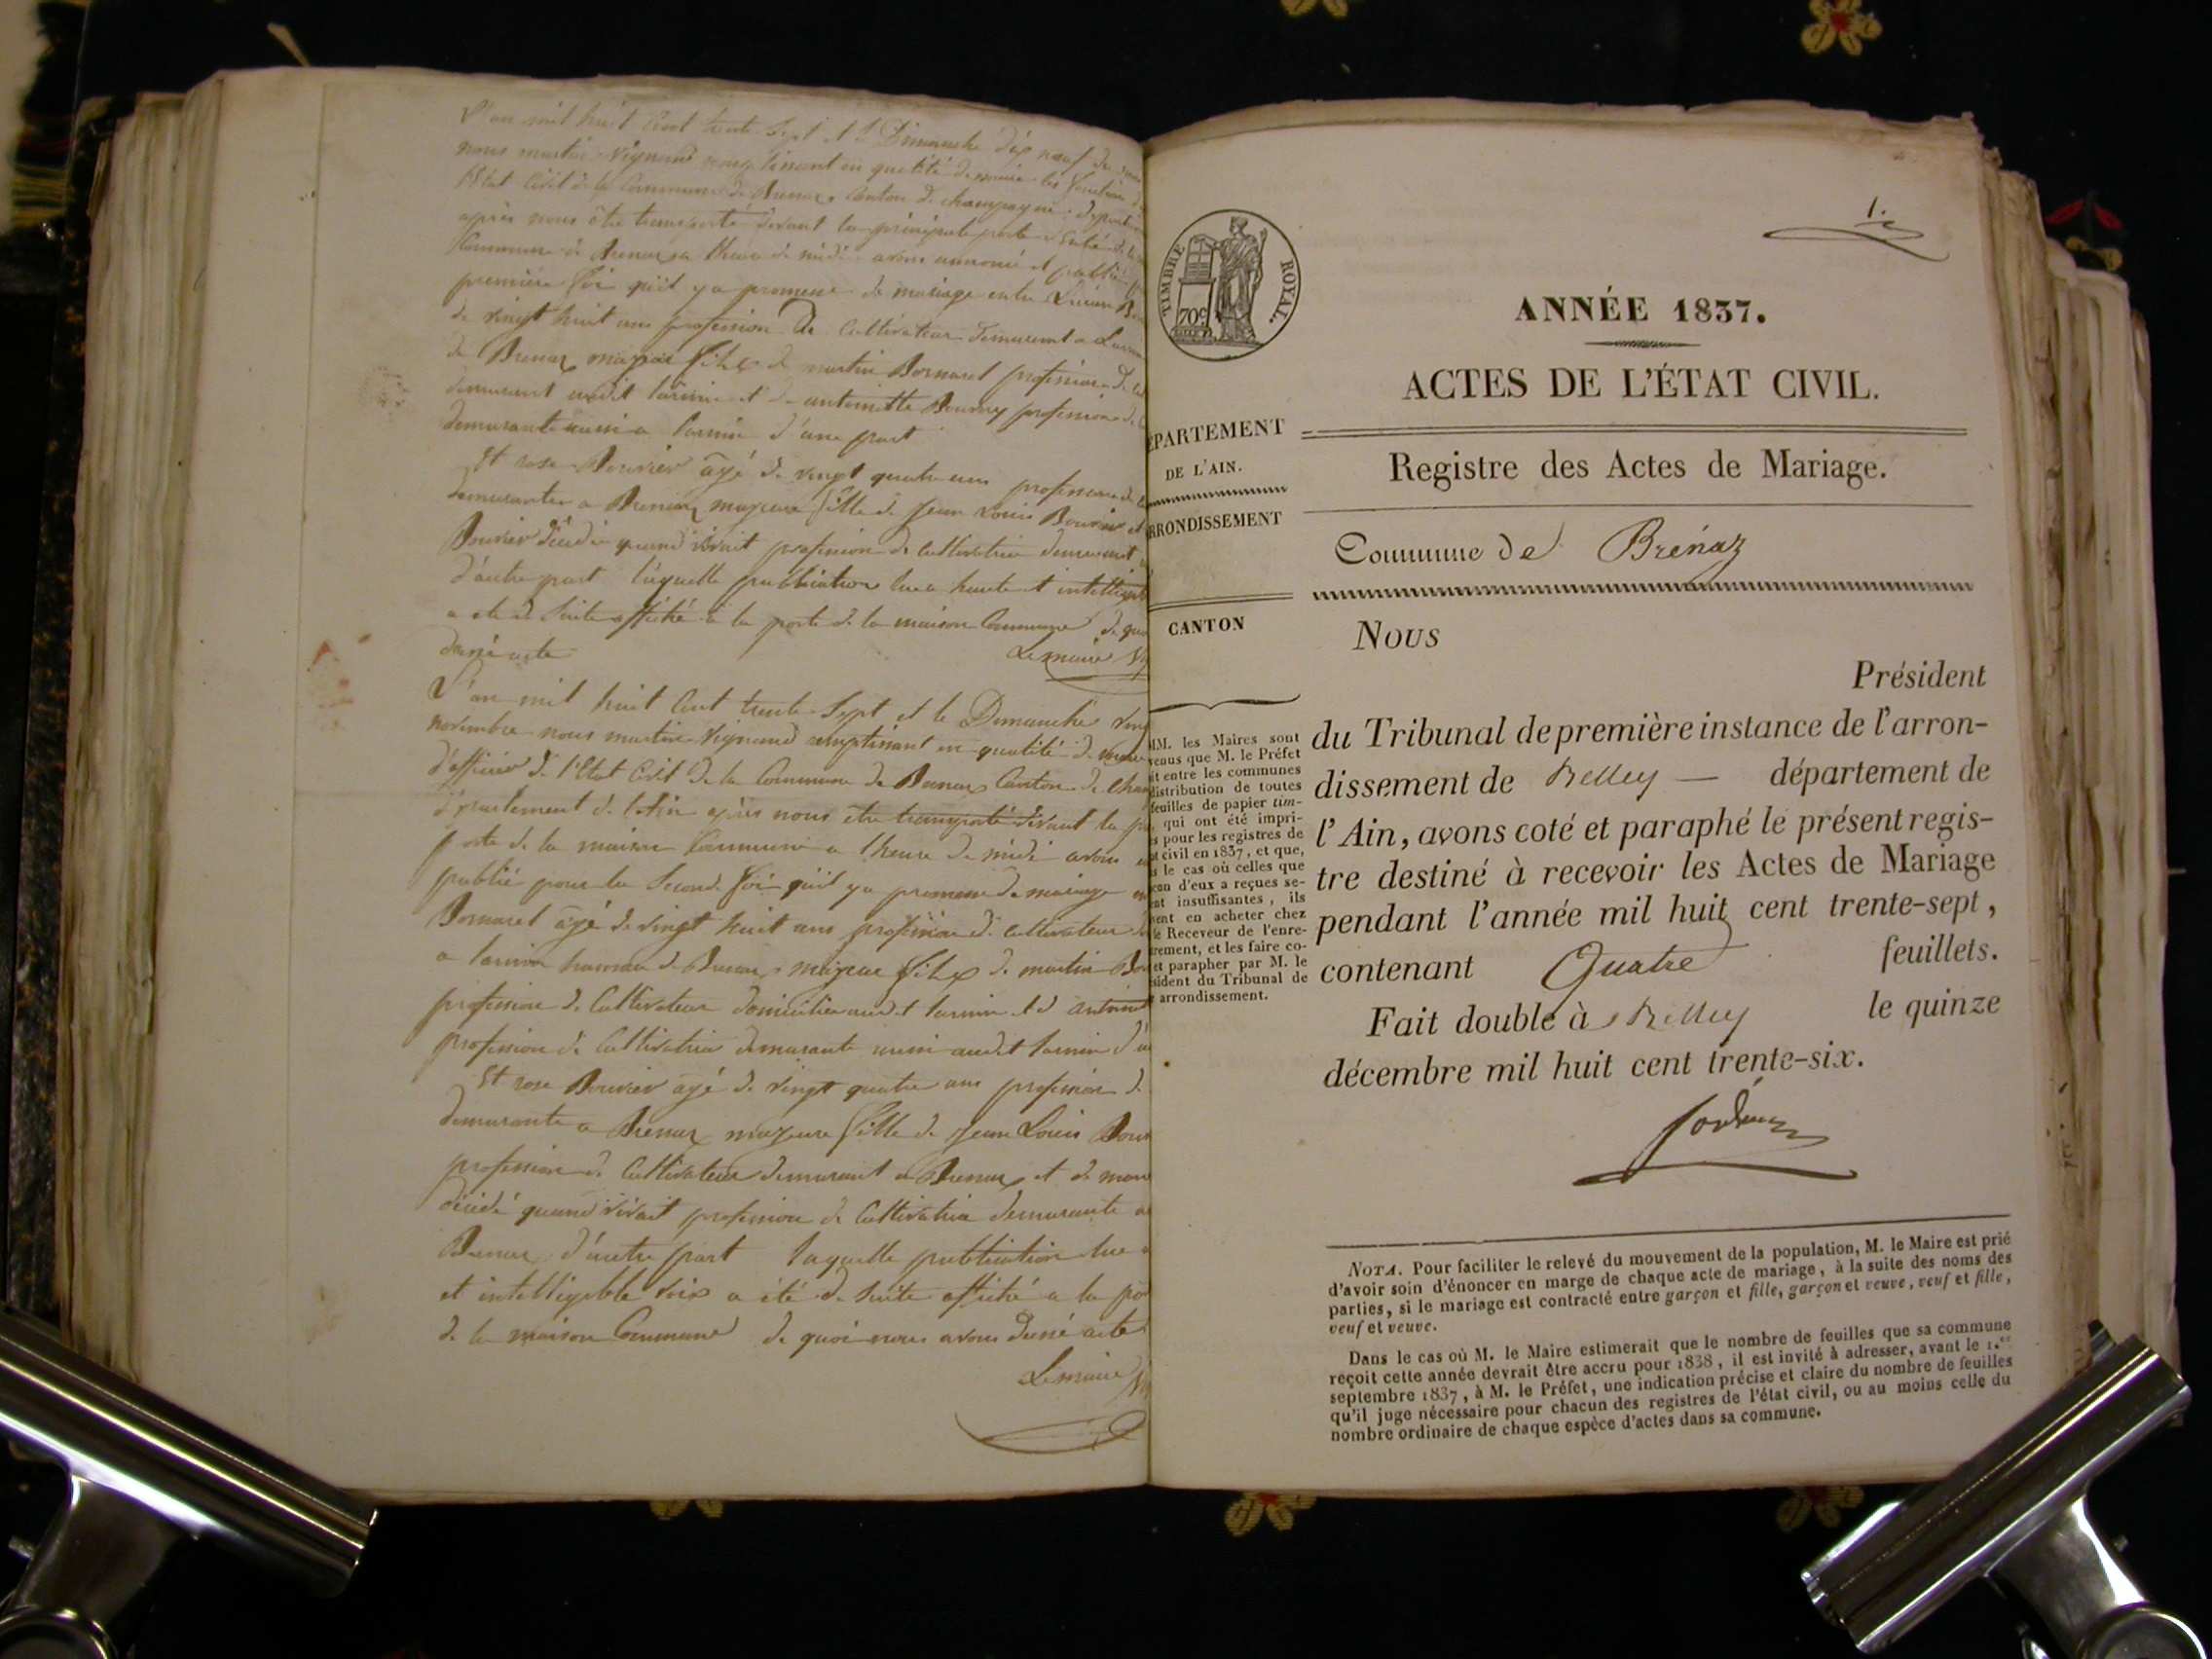 L'an mil huit cent trente sept et le Dimanche dix neuf de
nous martin vignand remplissant en qualité de maire les fonctions
l'état civil de la Commune de Brenaz Canton de champagne
après nous être transporté devant la principale porte
Commune de Brenaz a lheure de midi avons annoncé et publié
première foi qu'il y a promesse de mariage entre
de vingt huit ans profession de Cultivateur demeurant a
de Brenaz majeur fils de martin Bornarel profession de
demeurant audit et de antoinette profession de
demeurante aussi a d'une part
Et rose Bouvier âgé de vingt quatre ans profession de
demeurante a Brenaz majeure fille de Jean Louis Bouvier et
Bouvier quand vivait profession de cultivatrice demeurant
d'autre part laquelle publication lue a haute et intelligible
a été de suite affiché à la porte de la maison Commune de quoi
acte Le maire
L'an mil huit Cent trente Sept et le Dimanche
novembre nous martin vignand remplissant en qualité de maire
d'officier de l'Etat Civil de la Commune de Brenaz Canton de
département de l'Ain après nous être transporté devant la
porte de la maison Commune a lheure de midi avons
publié pour la Seconde foi qu'il y a promesse de mariage
Bornarel âgé de vingt huit ans profession de cultivateur
a hameau de Brenaz majeur fils de martin
profession de Cultivateur domicilié audit et d
profession de Cultivatrice demeurante aussi audit
Et rose Bouvier âgé de vingt quatre ans profession de
demeurante a Brenaz majeure fille de Jean Louis
profession de Cultivateur demeurant a Brenaz et de
décédé quand vivait profession de Cultivatrice demeurante a
Brenaz d'autre part laquelle publication lue a
et intelligible voix a été de suite affiché a la
de la maison Commune de quoi nous avons acte
Le maire
1.
TIMBRE ROYAL.
70c
ANNÉE 1837.
ACTES DE L'ÉTAT CIVIL.
ÉPARTEMENT
DE L'AIN.
RRONDISSEMENT
CANTON
Registre des Actes de Mariage.
Commune de Brénaz
Nous
Président
du Tribunal de première instance de l'arron-
dissement de Belley — département de
l'Ain, avons coté et paraphé le présent regis-
tre destiné à recevoir les Actes de Mariage
pendant l'année mil huit cent trente-sept,
contenant Quatre feuillets.
Fait double à Belley le quinze
décembre mil huit cent trente-six.
MM. les Maires sont
venus que M. le Préfet
it entre les communes
distribution de toutes
feuilles de papier tim-
qui ont été impri-
s pour les registres de
t civil en 1837, et que,
s le cas où celles que
cun d'eux a reçues se-
nt insuffisantes, ils
nt en acheter chez
le Receveur de l'enre-
trement, et les faire co-
et parapher par M. le
sident du Tribunal de
arrondissement.
NOTA. Pour faciliter le relevé du mouvement de la population, M. le Maire est prié
d'avoir soin d'énoncer en marge de chaque acte de mariage, à la suite des noms des
parties, si le mariage est contracté entre garçon et fille, garçon et veuve, veuf et fille,
veuf et veuve.
Dans le cas où M. le Maire estimerait que le nombre de feuilles que sa commune
reçoit cette année devrait être accru pour 1838, il est invité à adresser, avant le 1.er
septembre 1837, à M. le Préfet, une indication précise et claire du nombre de feuilles
qu'il juge nécessaire pour chacun des registres de l'état civil, ou au moins celle du
nombre ordinaire de chaque espèce d'actes dans sa commune.